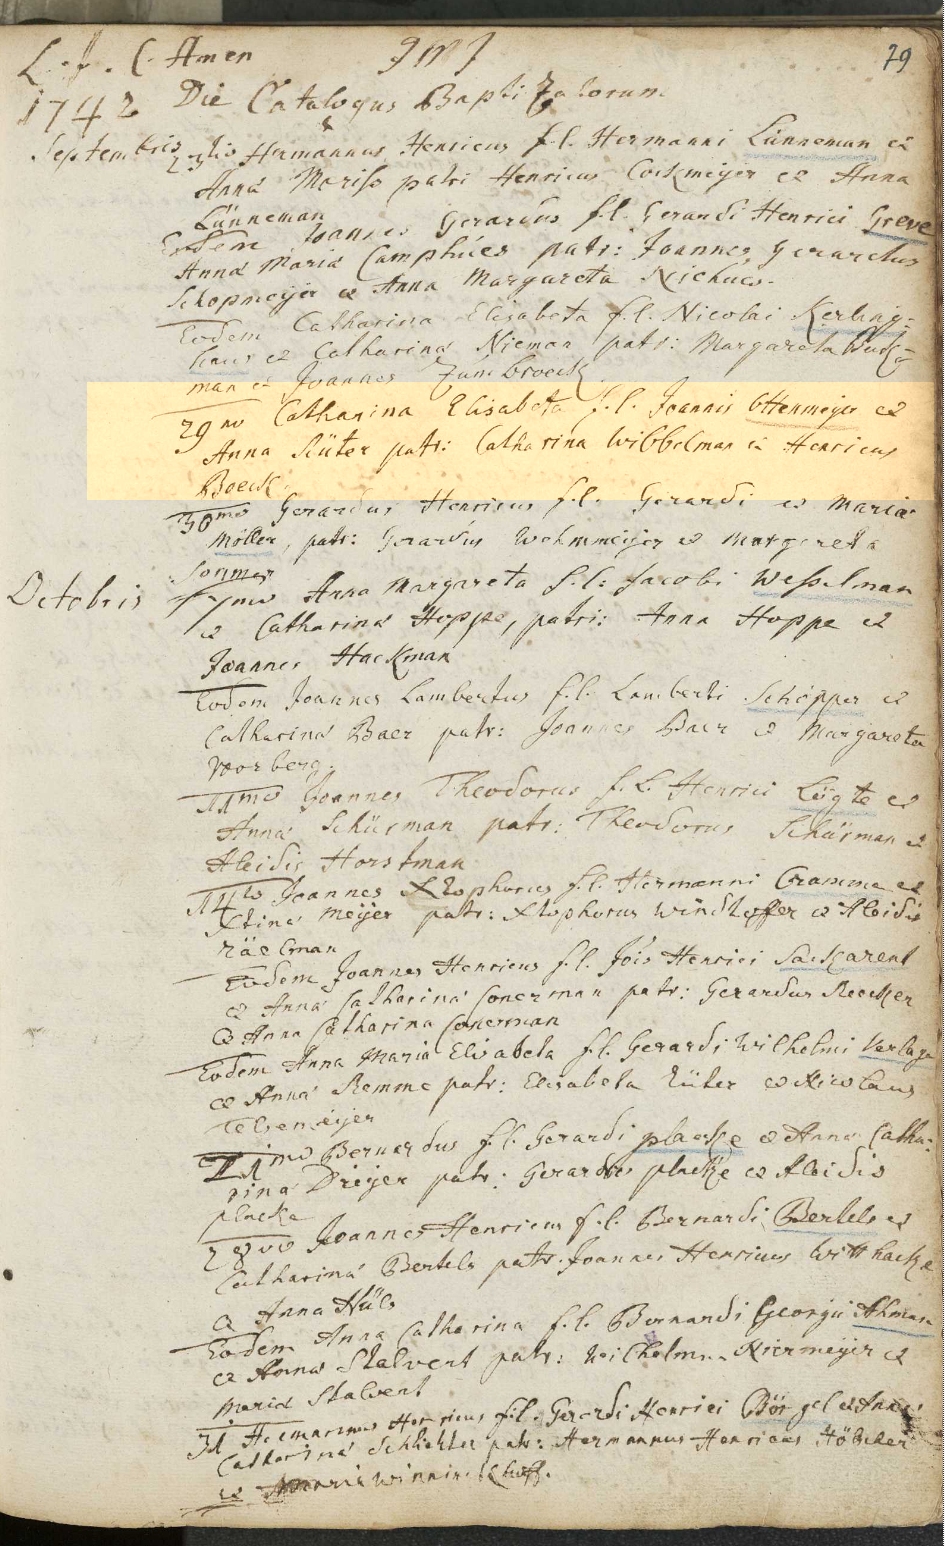 L. J. C. Amen JMJ 79
1742 Die Catalogus Baptizatorum
Septembris 23tio Hermannus Henricus f.l. Hermanni Lünneman et
Anna Mariss patri Henricus Cockmeijer et Anna
Lünneman
Eodem Joannes Gerardus f.l. Gerardi Henrici Greve
Anna Maria Camphues patr: Joannes Gerardus
Schopmeijer et Anna Margareta Niehues.
Eodem Catharina Elisabeta f.l. Nicolai Kerling-
haus et Catharina Nieman patr: Margareta
man et Joannes Zumbroeck
29no Catharina Elisabeta f.l. Joannis Ottenmeijer et
Anna Süter patr: Catharina Wibbelman et Henricus
Boeck.
30mo Gerardus Henricus f.l. Gerardi et Maria
Möller, patr: Gerardus Wehmmeijer et Margareta
Sonmer
Octobris 7mo Anna Margareta f.l: Jacobi Wesselman
et Catharina Hoppe, patri: Anna Hoppe et
Joannes Hackman
Eodem Joannes Lambertus f.l. Lamberti Schöpper et
Catharina Baer patr: Joannes Baer et Margareta
Vorberg.
11mo Joannes Theodorus f.l. Henrici Lügte et
Anna Schürman patr: Theodorus Schürman et
Aleidis Horstman
14to Joannes Xtophorus f.l. Hermanni Cramme et
Xtina Meijer patr: Xtophorus et Aleidis
räelman
Eodem Joannes Henricus f.l. Jois Henrici Sackarent
et Anna Catharina Conerman patr: Gerardus Roecker
et Anna Catharina Conerman
Eodem Anna Maria Elisabeta f.l. Gerardi Wilhelmi Verlage
et Anna Remme patr: Elisabeta Rüter et Nicolaus
Telsemeijer
21mo Bernardus f.l. Gerardi placke et Anna Catha-
rina Dreijer patr: Gerardus placke et Aleidis
placke
28vo Joannes Henricus f.l. Bernardi Bertels et
Catharina Bertels patr: Joannes Henricus Witthacke
et Anna Hüls
Eodem Anna Catharina f.l. Bernardi Georgii Ahman
et Anna Stalvent patr: Wilhelm. Niermeijer et
Maria Stalvent
31 Hermannus Henricus f.l. Gerardi Henrici Börgel et Anna
Catharina Schlichter patr: Hermannus Henricus Höbcker
et Maria